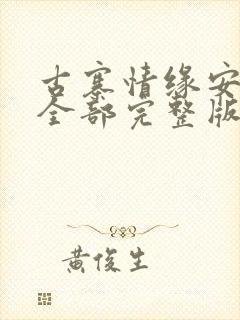 古寨情缘安
全部完整版
黄俊生